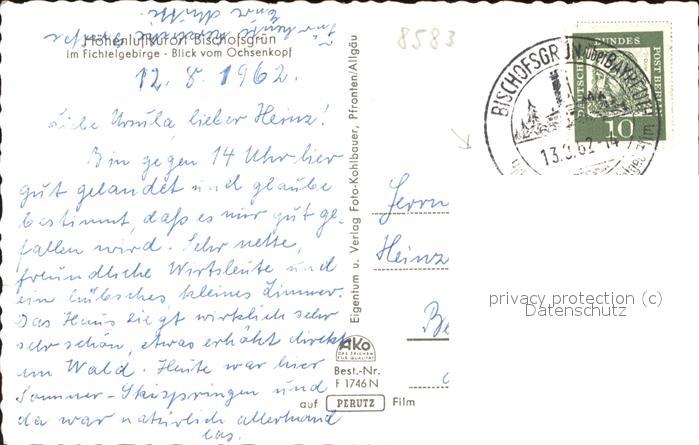 Höhenluftkurort Bischofsgrün
im Fichtelgebirge - Blick vom Ochsenkopf
12.8.1962.
Liebe Ursula, lieber Heinz!
Bin gegen 14 Uhr hier
gut gelandet und glaube
bestimmt, daß es mir gut ge-
fallen wird. Sehr nette,
freundliche Wirtsleute und
ein hübsches, kleines Zimmer.
Das Haus liegt wirklich sehr
sehr schön, etwas erhöht direkt
im Wald. Heute war hier
Sommer-Skispringen und
da war natürlich allerhand
los.
Eigentum u. Verlag Foto-Kohlbauer, Pfronten/Allgäu
AKo
DAS ZEICHEN
FÜR QUALITÄT
Best.-Nr.
F 1746 N
auf PERUTZ Film
8583
BISCHOFSGRÜN über BAYREUTH
13.8.62-14
DEUTSCHE BUNDESPOST BERLIN
10
Herrn
Heinz
privacy protection (c)
Datenschutz